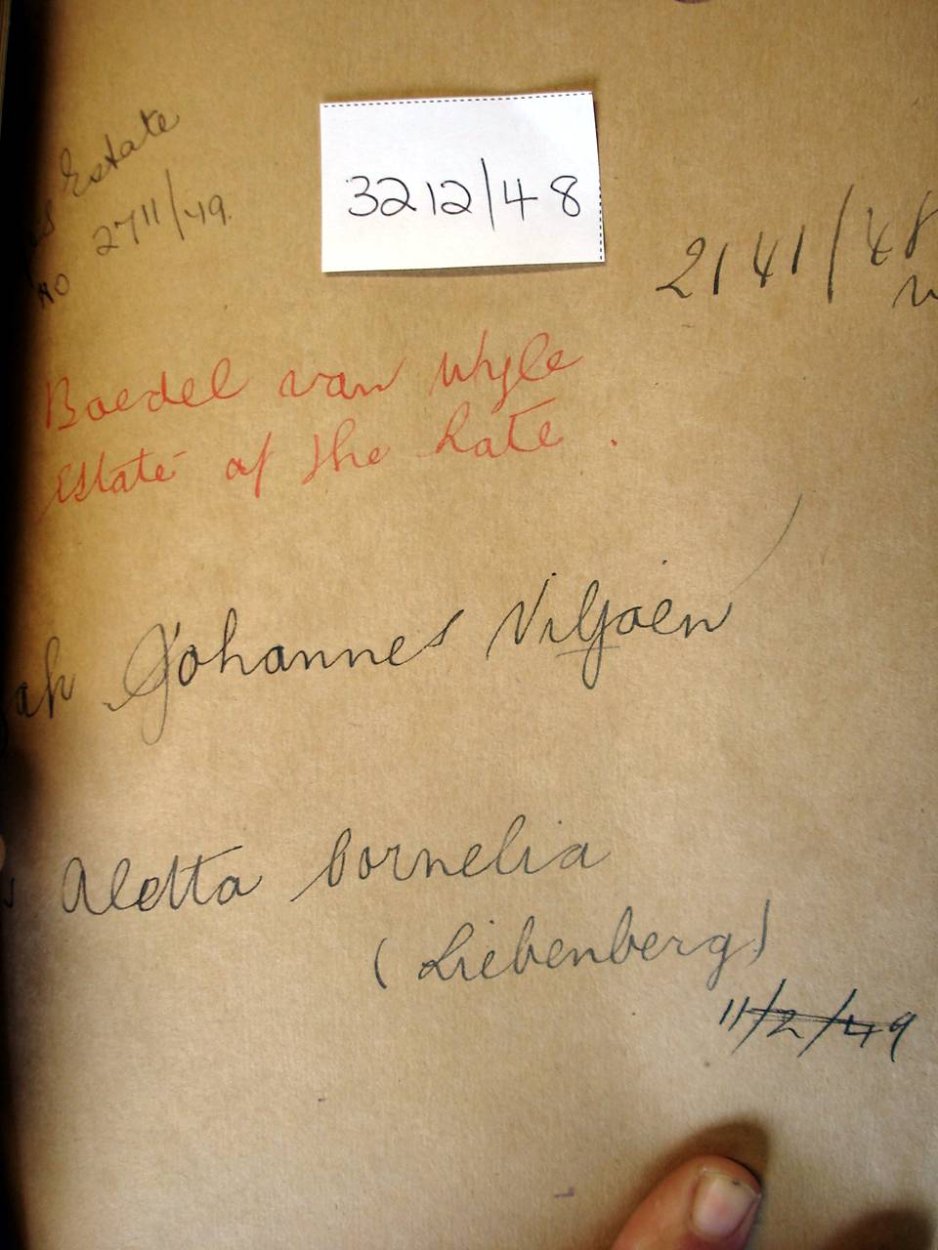 Estate
No 2711/49.
3212/48
2141/48
Boedel van Wyle
Estate of the Late.
Johannes Viljoen
Aletta Cornelia
(Liebenberg)
11/2/49